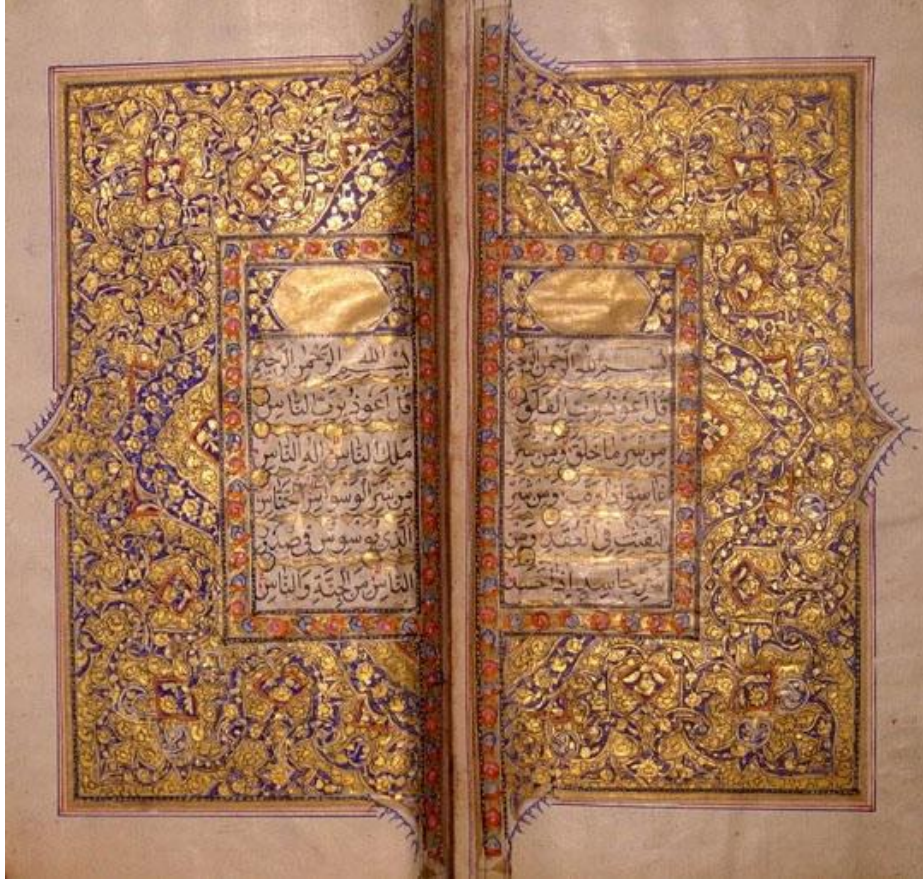 بِسْمِ اللهِ الرَّحْمٰنِ الرَّحِيْمِ
قُلْ اَعُوْذُ بِرَبِّ الْفَلَقِ
مِنْ شَرِّ مَا خَلَقَ وَمِنْ شَرِّ
غَاسِقٍ اِذَا وَقَبَ وَمِنْ شَرِّ
النَّفّٰثٰتِ فِى الْعُقَدِ وَمِنْ
شَرِّ حَاسِدٍ اِذَا حَسَدَ
بِسْمِ اللهِ الرَّحْمٰنِ الرَّحِيْمِ
قُلْ اَعُوْذُ بِرَبِّ النَّاسِ
مَلِكِ النَّاسِ اِلٰهِ النَّاسِ
مِنْ شَرِّ الْوَسْوَاسِ الْخَنَّاسِ
الَّذِىْ يُوَسْوِسُ فِىْ صُدُوْرِ
النَّاسِ مِنَ الْجِنَّةِ وَالنَّاسِ